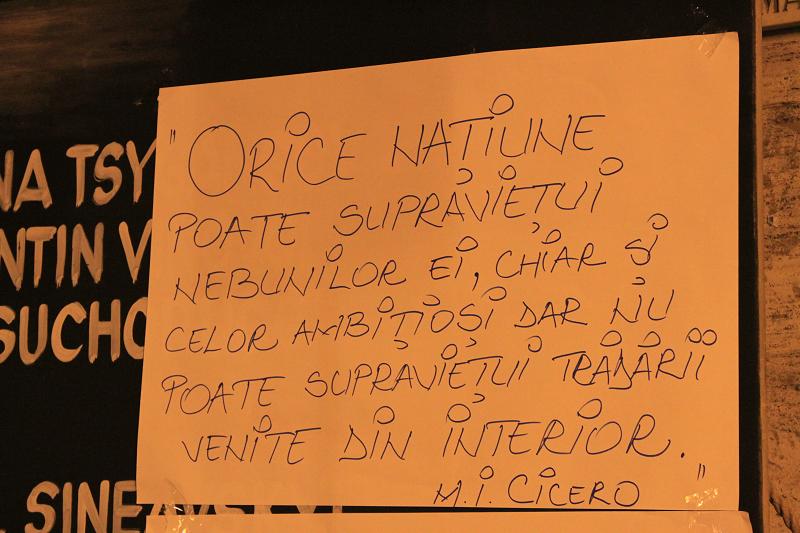 "ORICE NATIUNE
POATE SUPRAVIEȚUI
NEBUNILOR EI, CHIAR ȘI
CELOR AMBIȚIOȘI DAR NU
POATE SUPRAVIEȚUI TRĂDĂRII
VENITE DIN INTERIOR.
M.I. CICERO"
NA TSY
NTIN V
SUCHO
. SINEAVSKYI
MA